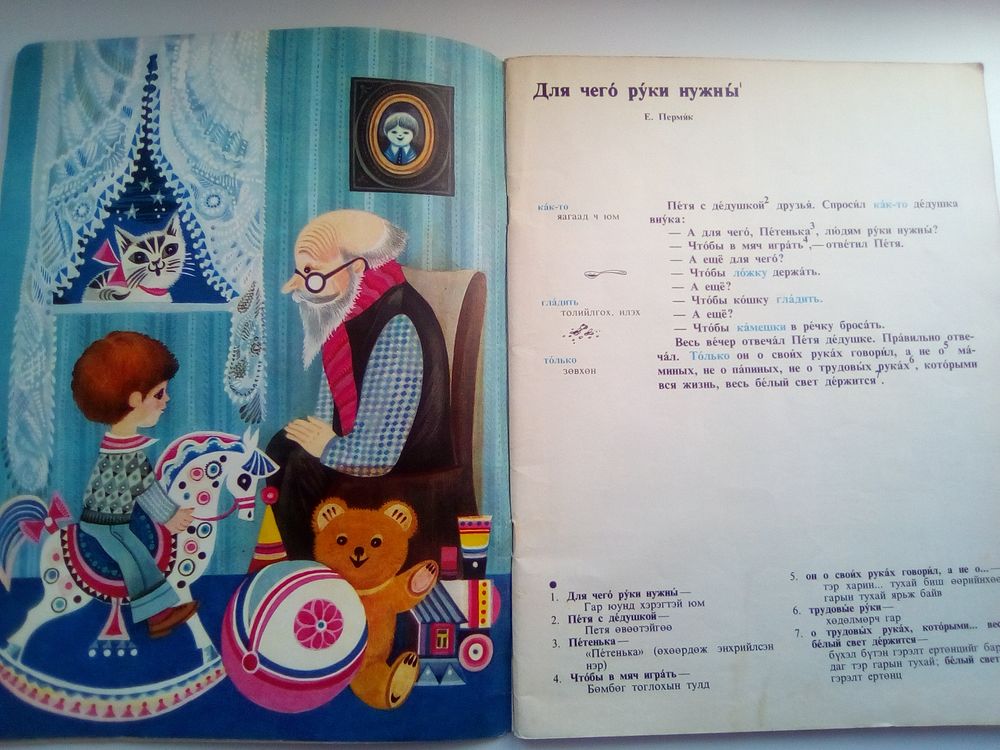 Для чего́ ру́ки нужны́¹
Е. Пермя́к
ка́к-то
яагаад ч юм
гла́дить
толийлгох, илэх
то́лько
зөвхөн
Пе́тя с де́душкой² друзья́. Спроси́л ка́к-то де́душка
вну́ка:
— А для чего́, Пе́тенька³, лю́дям ру́ки нужны́?
— Что́бы в мяч игра́ть⁴,— отве́тил Пе́тя.
— А ещё для чего́?
— Что́бы ло́жку держа́ть.
— А ещё?
— Что́бы ко́шку гла́дить.
— А ещё?
— Что́бы ка́мешки в ре́чку броса́ть.
Весь ве́чер отвеча́л Пе́тя де́душке. Пра́вильно отве-
ча́л. То́лько он о свои́х рука́х говори́л, а не о⁵ ма́-
миных, не о па́пиных, не о трудовы́х рука́х⁶, кото́рыми
вся жизнь, весь бе́лый свет де́ржится⁷.
1. Для чего́ ру́ки нужны́ —
Гар юунд хэрэгтэй юм
2. Пе́тя с де́душкой —
Петя өвөөтэйгөө
3. Пе́тенька —
«Пе́тенька» (өхөөрдөж энхрийлсэн
нэр)
4. Что́бы в мяч игра́ть —
Бөмбөг тоглохын тулд
5. он о свои́х рука́х говори́л, а не о... —
тэр харин... тухай биш өөрийнхөө
гарын тухай ярьж байв
6. трудовы́е ру́ки —
хөдөлмөрч гар
7. о трудовы́х рука́х, кото́рыми... вес
бе́лый свет де́ржится —
бүхэл бүтэн гэрэлт ертөнцийг бар
даг тэр гарын тухай; бе́лый свет
гэрэлт ертөнц